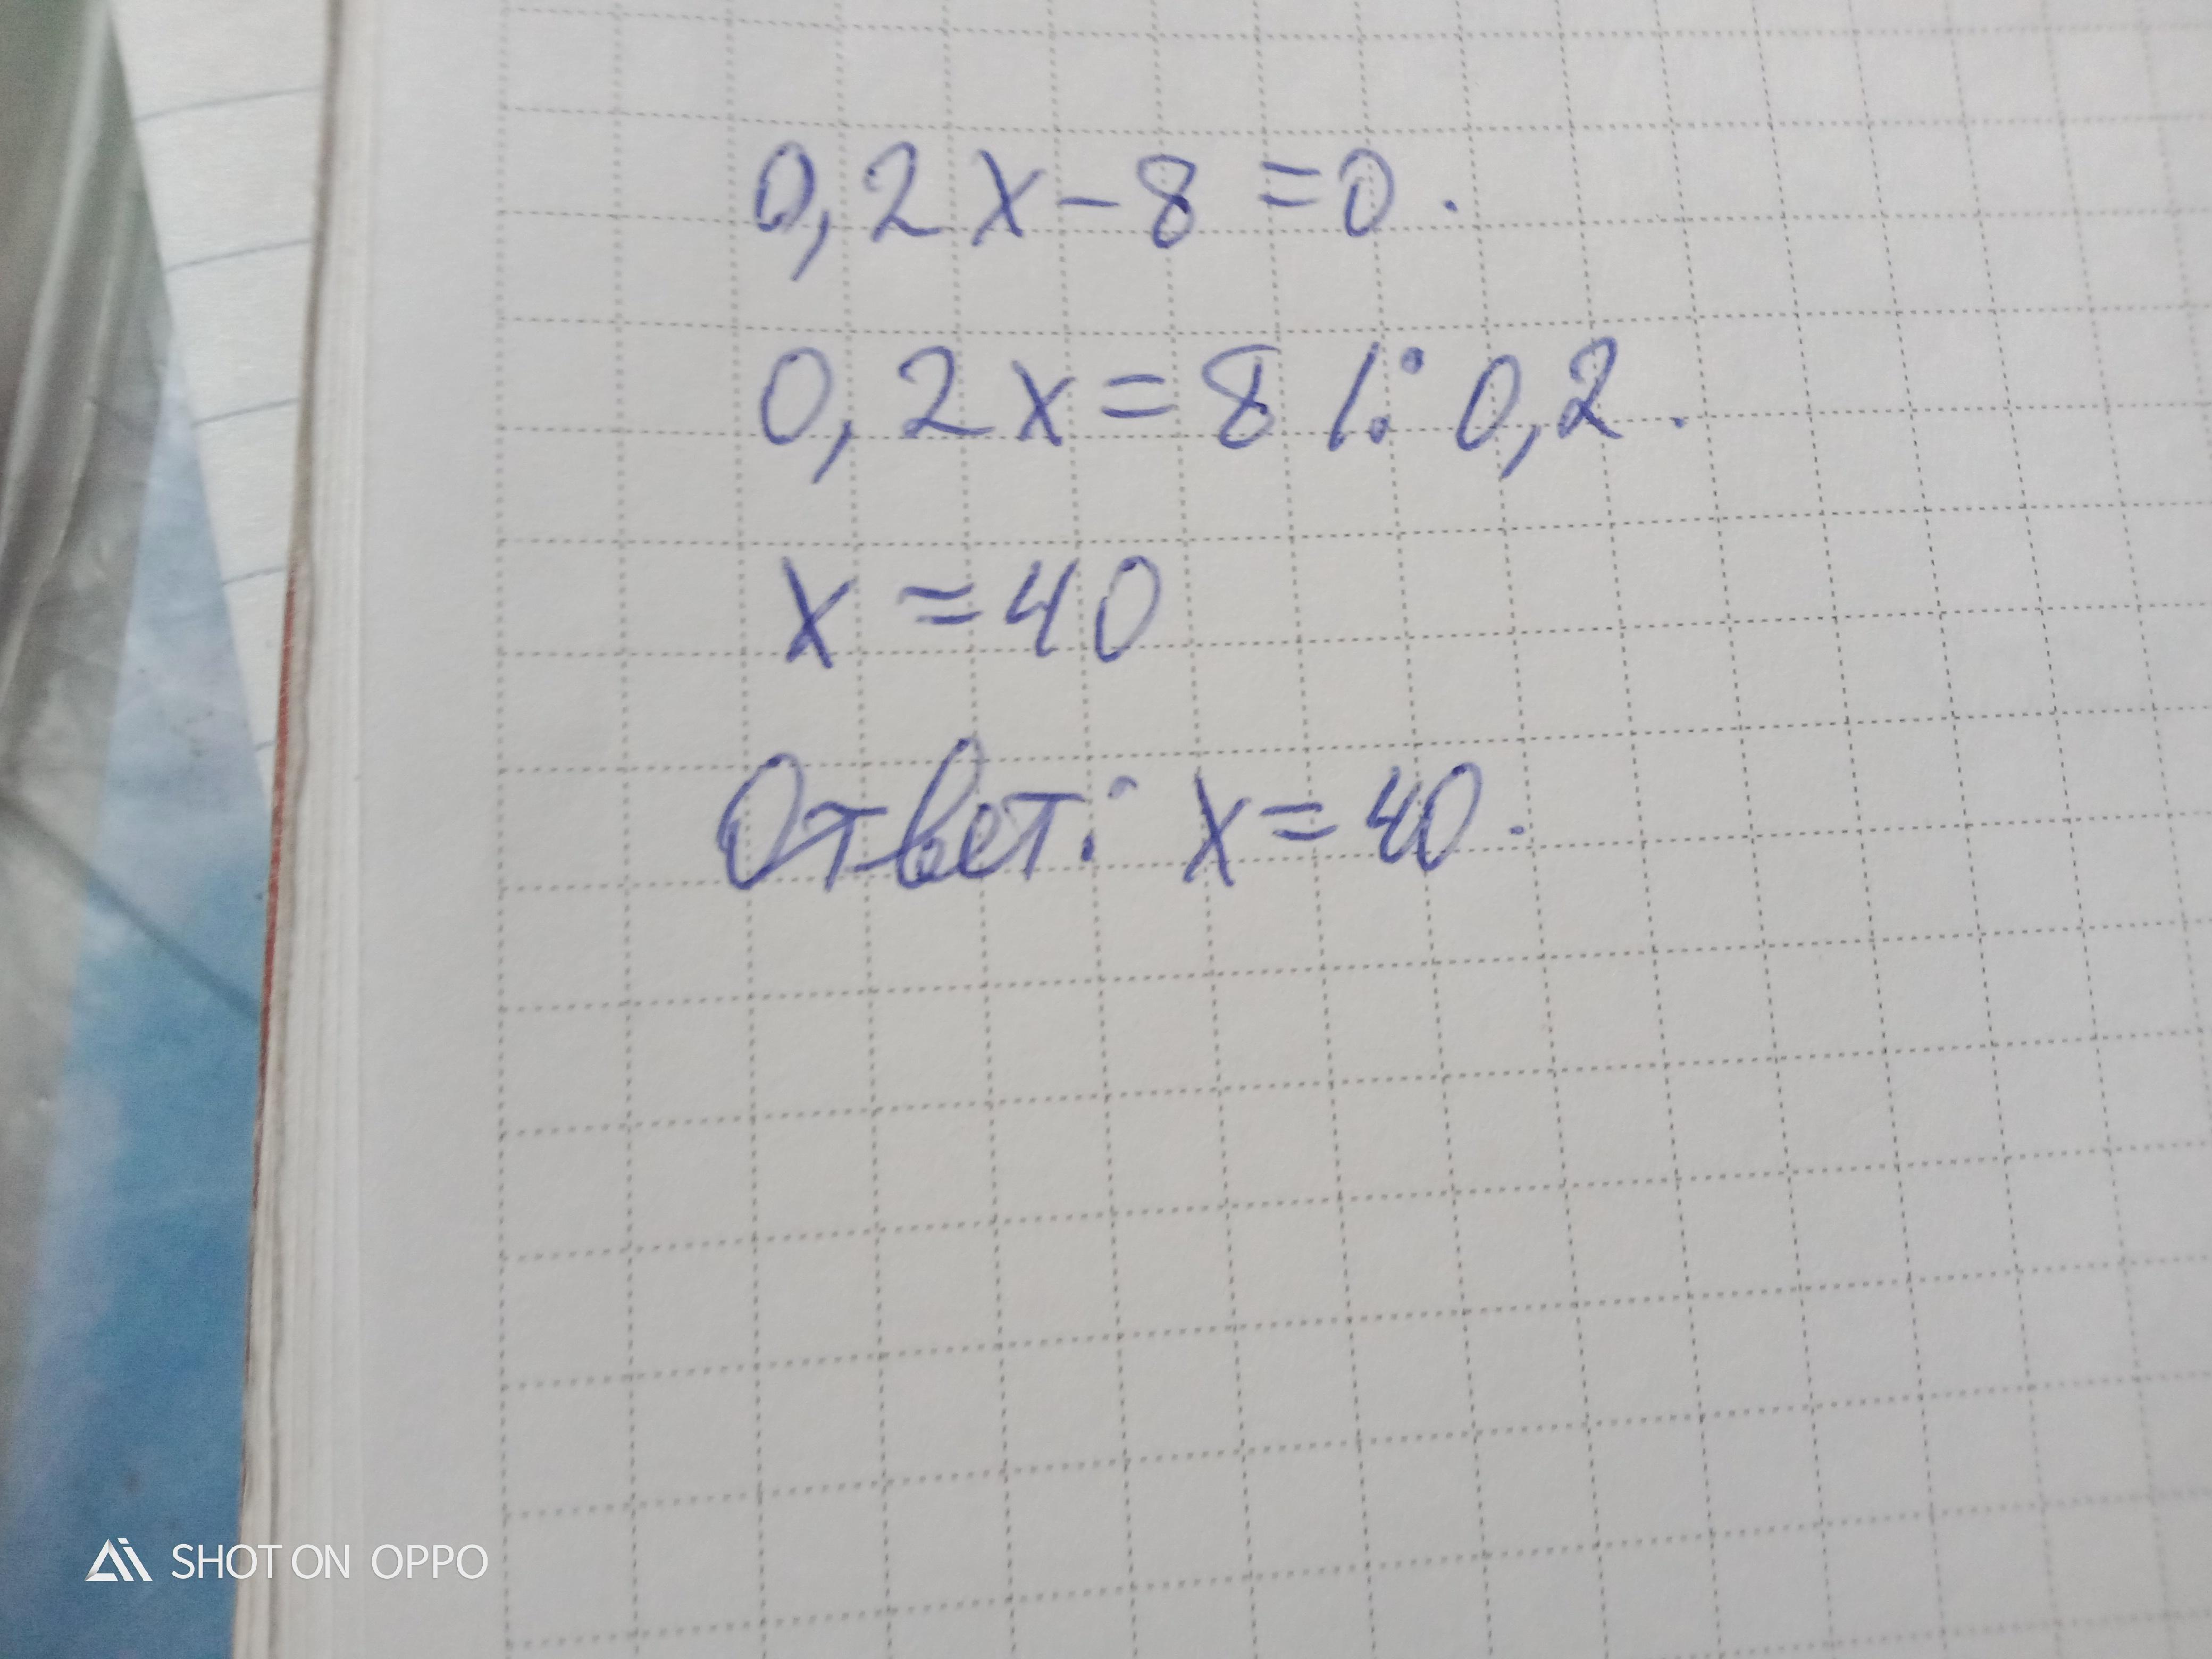 0,2x-8=0.
0,2x=8 |: 0,2.
x=40
Ответ: x=40.
SHOT ON OPPO